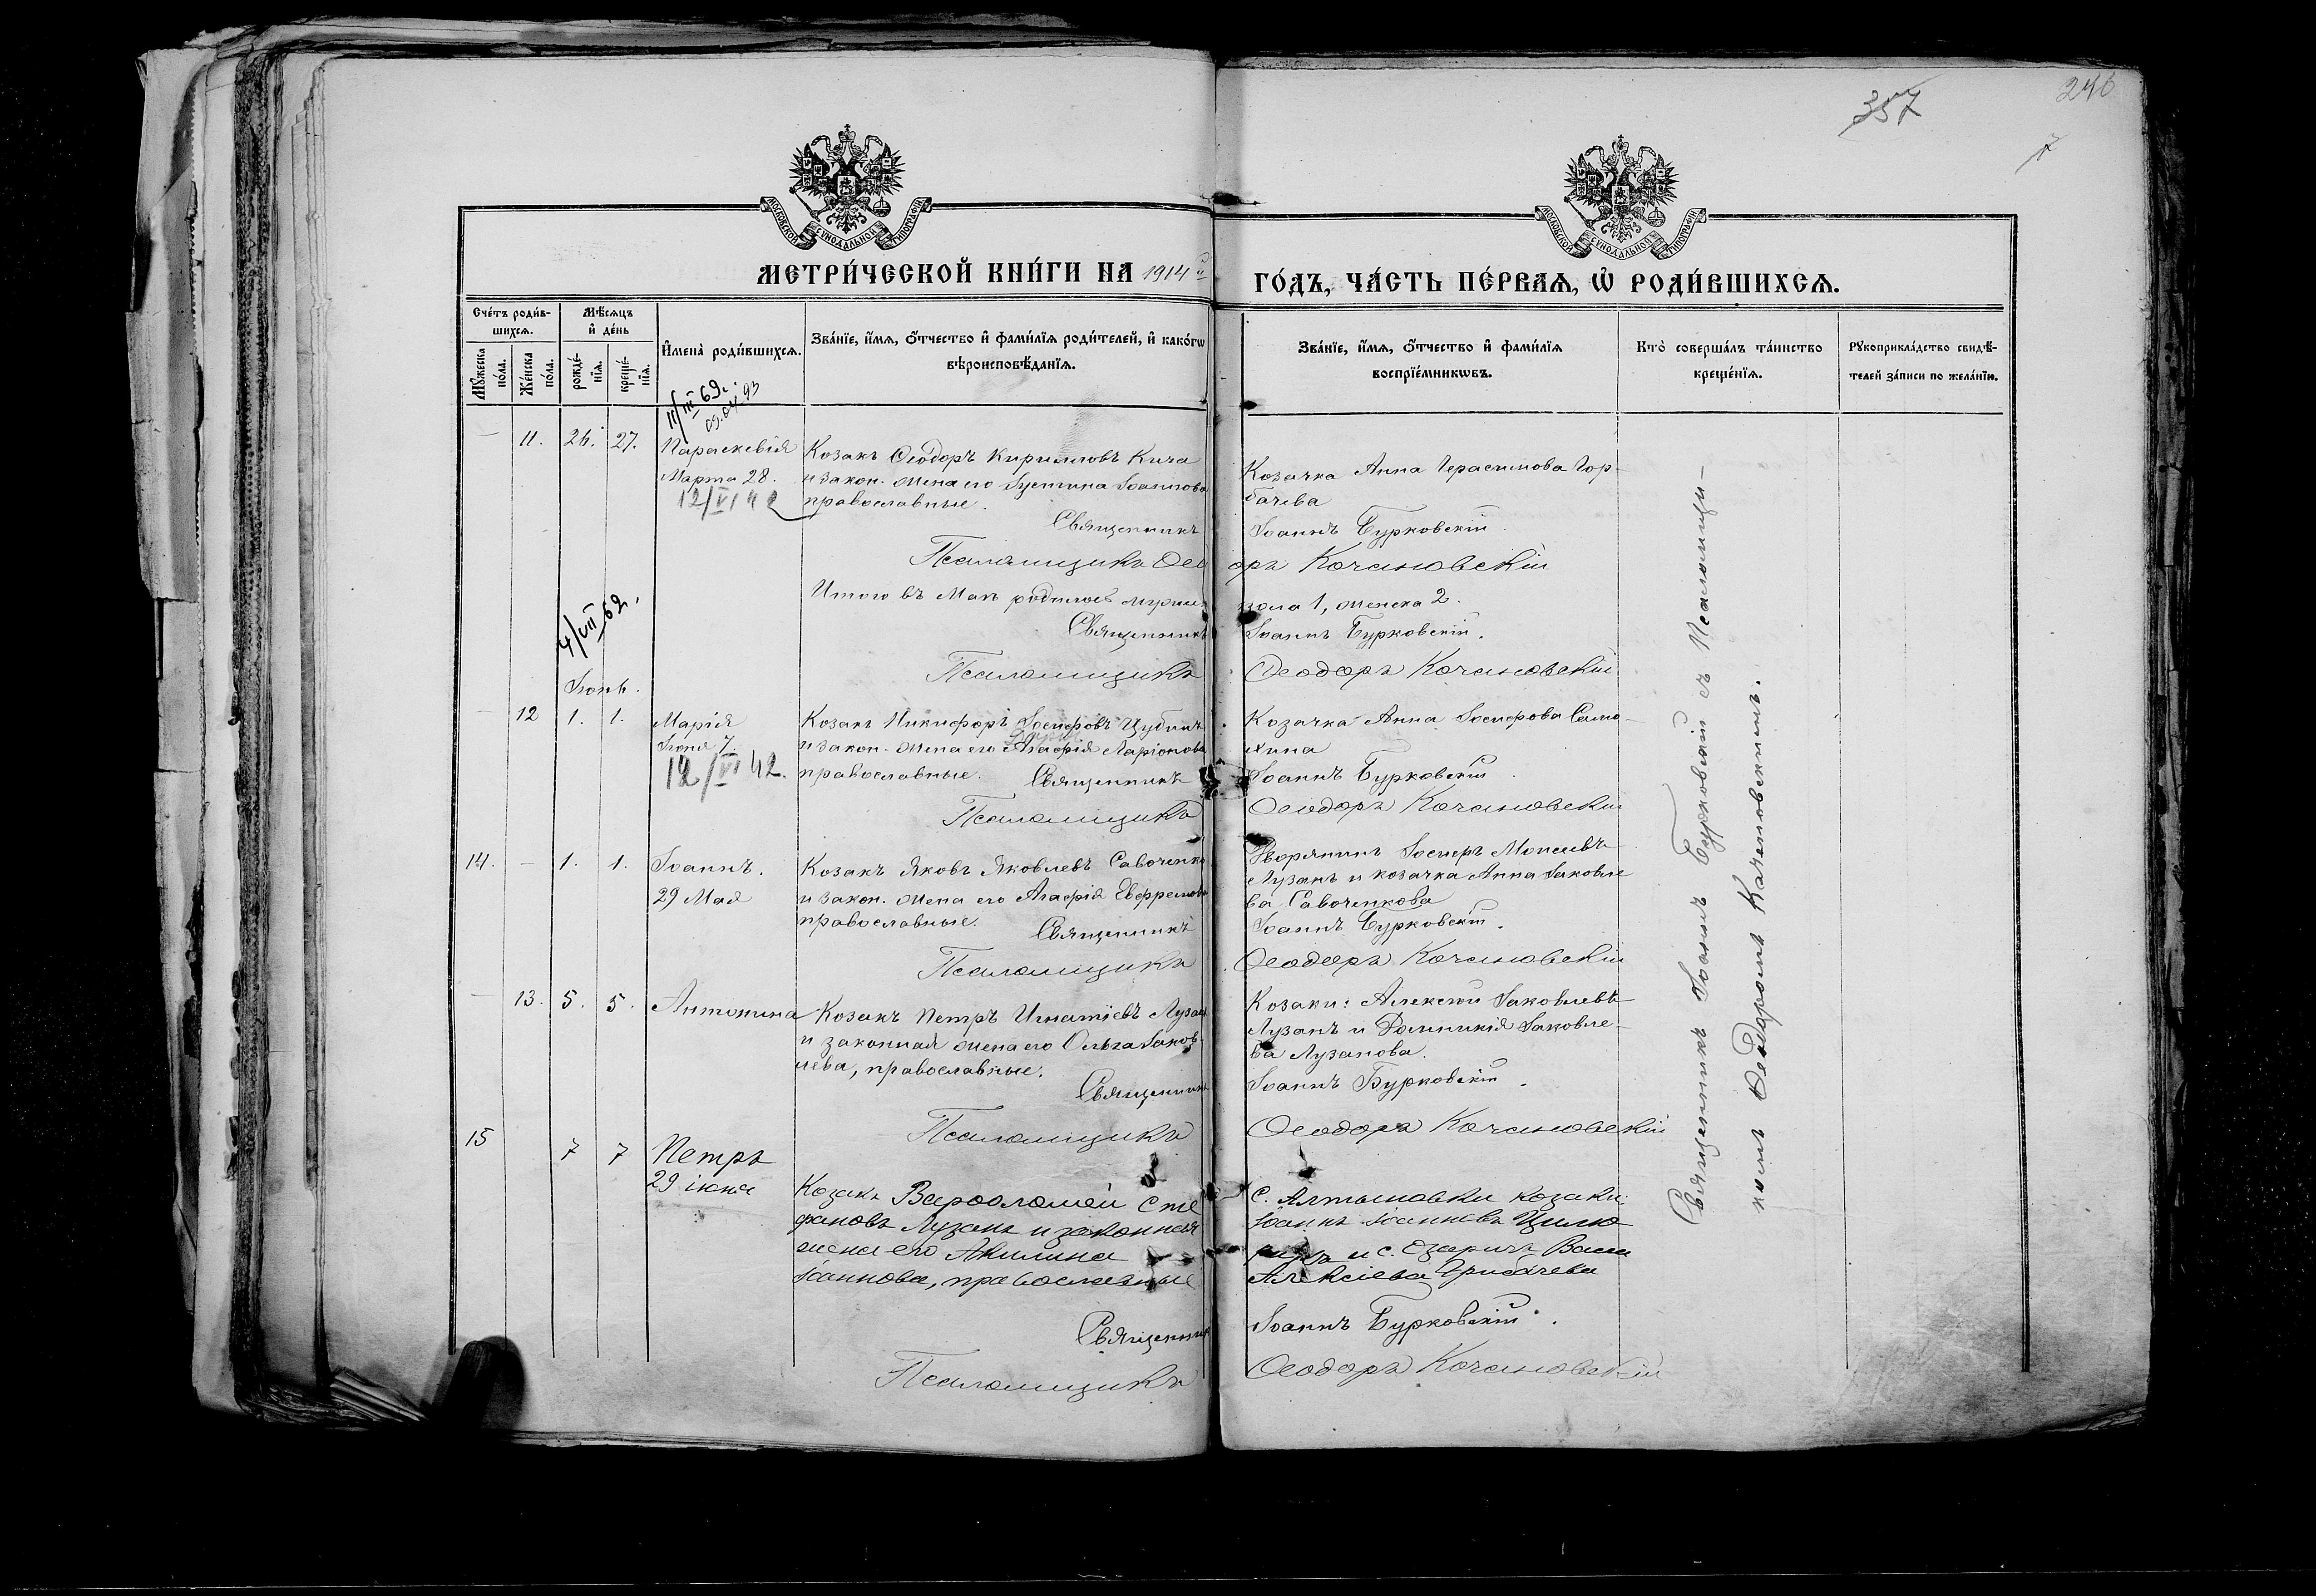 357
246
7
МОСКОВСКОЙ СУНОДАЛЬНОЙ ТИПОГРАФІИ
МОСКОВСКОЙ СУНОДАЛЬНОЙ ТИПОГРАФІИ
МЕТРИ́ЧЕСКОЙ КНИ́ГИ НА 1914 й
ГО́ДЪ, ЧА́СТЬ ПЕ́РВАѦ, Ѡ РОДИ́ВШИХСѦ.
Сче́тъ роди́в-
шихсѧ.
Мꙋжеска по́ла.
Же́нска по́ла.
Мѣ́сѧцъ
и҆ де́нь
рожде́-
нїѧ.
креще́-
нїѧ.
И҆мена̀ роди́вшихсѧ.
Зва́нїе, и҆́мѧ, ѻ҆́тчество и҆ фами́лїѧ роди́телей, и҆ како́гѡ
вѣроисповѣ́данїѧ.
Зва́нїе, и҆́мѧ, ѻ҆́тчество и҆ фами́лїѧ
воспрїе́мникѡвъ.
Кто̀ соверша́лъ та́инство
креще́нїѧ.
Рꙋкоприкла́дство свидѣ́-
телей за́писи по жела́нїю.
11/III 69г.
09.04.93
— 11. 26. 27.
Параскевія
Марта 28.
12/VI 42
Козакъ Ѳеодоръ Кирилловъ Кича
и закон. жена его Іустина Іоаннова
православные.
Священникъ
Псаломщикъ Ѳео
Козачка Анна Герасимова Гор-
бачева
Іоаннъ Бурковскій.
оръ Кочановскій
Итого въ Маѣ родилось мужес.
пола 1, женска 2.
Священникъ
Іоаннъ Бурковскій.
Псаломщикъ
Ѳеодоръ Кочановскій
4/VII 62.
Іюнь.
— 12 1. 1.
Марія
Іюня 7.
12/VI 42.
Козакъ Никифоръ Іосифовъ
и закон. жена его Агафія Ларіонова
православные. Священникъ
Псаломщикъ
Козачка Анна Іосифова Само-
хина
Іоаннъ Бурковскій.
Ѳеодоръ Кочановскій
14. — 1. 1.
Іоаннъ.
29 Мая
Козакъ Яковъ Яковлевъ Савоченко
и закон. жена его Агафія Евфремова
православные. Священникъ
Псаломщикъ
Дворянинъ Іосифъ Моисеевъ
Лузанъ и козачка Анна Іаковле
ва Савоченкова
Іоаннъ Бурковскій.
Ѳеодоръ Кочановскій
— 13. 5. 5.
Антонина
Козакъ Петръ Игнатіевъ Лузанъ
и законная жена его Ольга Іаков-
лева, православные.
Священникъ
Псаломщикъ
Козаки: Алексій Іаковлевъ
Лузанъ и Домникія Іаковле-
ва Лузанова.
Іоаннъ Бурковскій.
Ѳеодоръ Кочановскій
15 7 7
Петръ
29 іюня
Козакъ Варѳоломей Сте
фановъ Лузанъ и законная
жена его Акилина
Іоаннова, православные
Священникъ
Псаломщикъ
С. Алтыновки козаки:
Іоаннъ Іоанневъ Цилю
рикъ и с.
Алексіева
Іоаннъ Бурковскій.
Ѳеодоръ Кочановскій
Священникъ Іоаннъ Бурковскій съ Псаломщи-
комъ Ѳеодоромъ Качановскимъ.